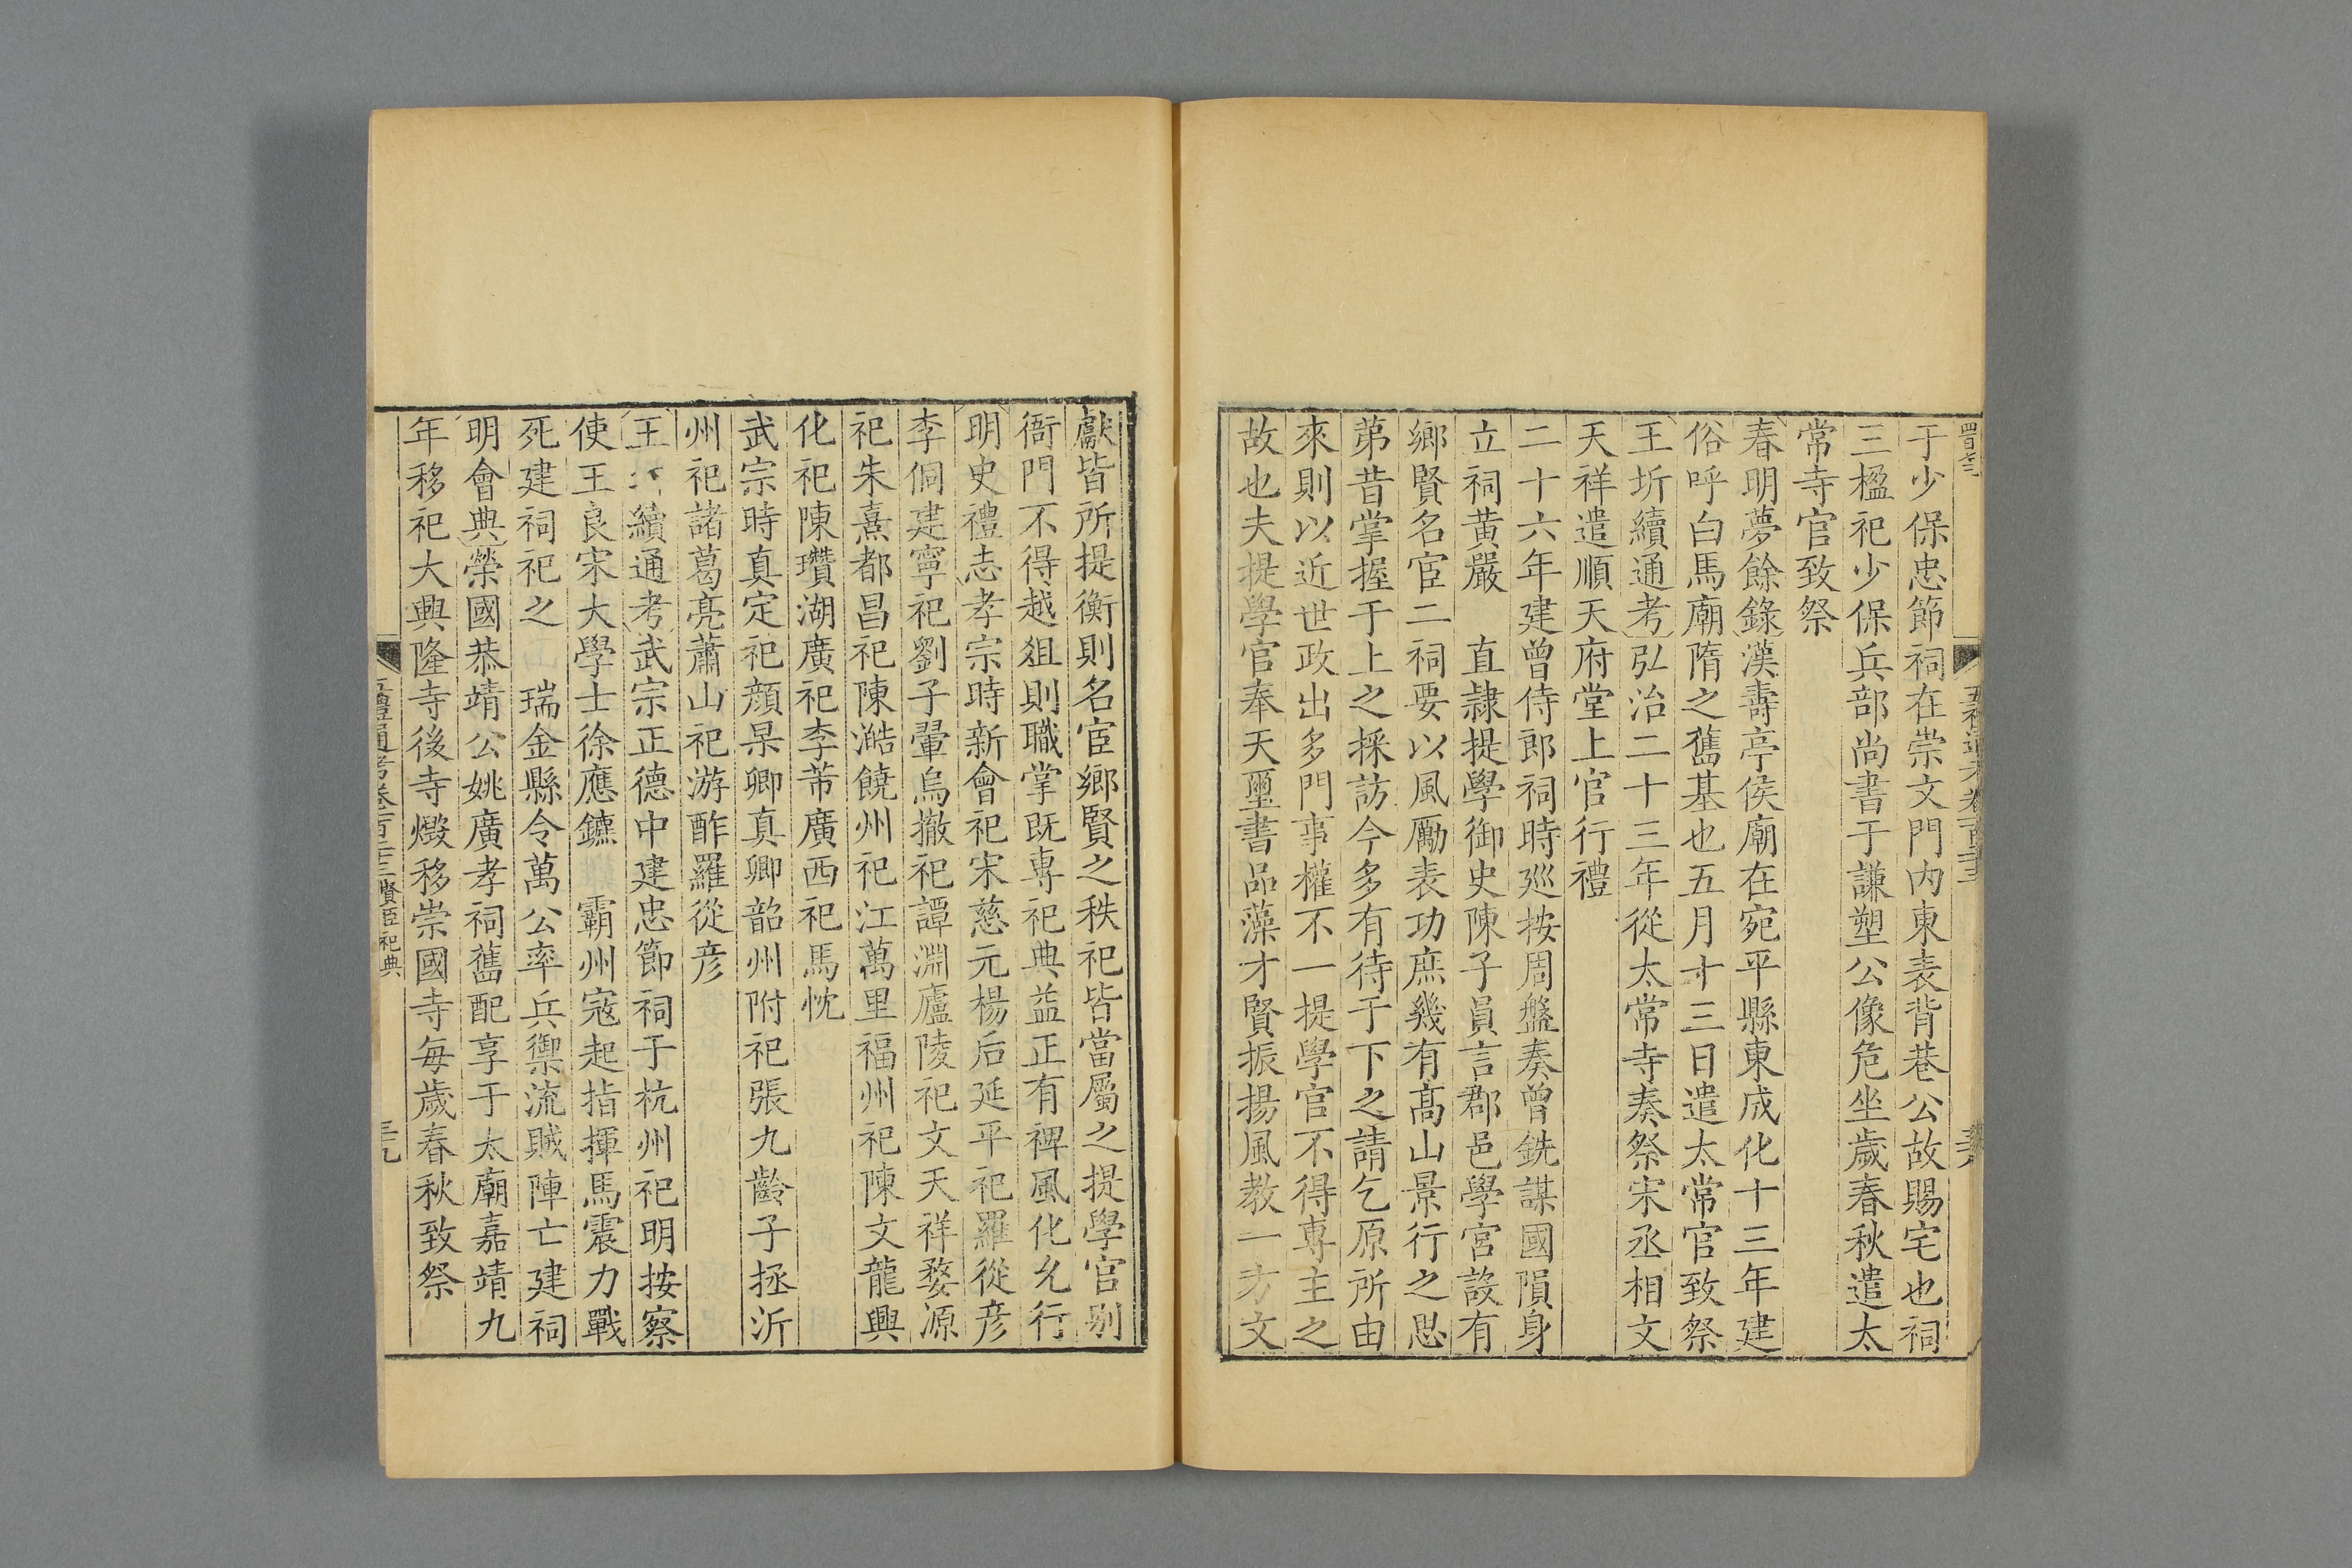 于少保忠節祠在崇文門内東表背巷公故賜宅也祠
三楹祀少保兵部尚書于謙塑公像危坐歲春秋遣太
常寺官致祭
春明夢餘錄漢壽亭侯廟在宛平縣東成化十三年建
俗呼白馬廟隋之舊基也五月十三日遣太常官致祭
王圻續通考弘治二十三年從太常寺奏祭宋丞相文
天祥遣順天府堂上官行禮
二十六年建曾侍郎祠時廵按周盤奏曾銑謀國隕身
立祠黄巖　直隷提學御史陳子員言郡邑學宮設有
鄉賢名宦二祠要以風勵表功庶幾有髙山景行之思
苐昔掌握于上之採訪今多有待于下之請乞原所由
來則以近世政出多門事權不一提學官不得専主之
故也夫提學官奉天璽書品藻才賢振揚風教一方文
獻皆所提衡則名宦鄉賢之秩祀皆當屬之提學官别
衙門不得越俎則職掌既専祀典益正有禆風化允行
明史禮志孝宗時新會祀宋慈元楊后延平祀羅從彦
李侗建寧祀劉子翬烏撤祀譚淵廬陵祀文天祥婺源
祀朱熹都昌祀陳澔饒州祀江萬里福州祀陳文龍興
化祀陳瓚湖廣祀李芾廣西祀馬忱
武宗時真定祀顔杲卿真卿韶州附祀張九齡子拯沂
州祀諸葛亮蕭山祀游酢羅從彦
王續通考武宗正德中建忠節祠于杭州祀明按察
使王良宋大學士徐應鑣　霸州宼起指揮馬震力戰
死建祠祀之　瑞金縣令萬公率兵禦流賊陣亡建祠
明會典榮國恭靖公姚廣孝祠舊配享于太廟嘉靖九
年移祀大興隆寺後寺燬移崇國寺每歲春秋致祭
五禮通考卷一百二十三賢臣祀典
三九